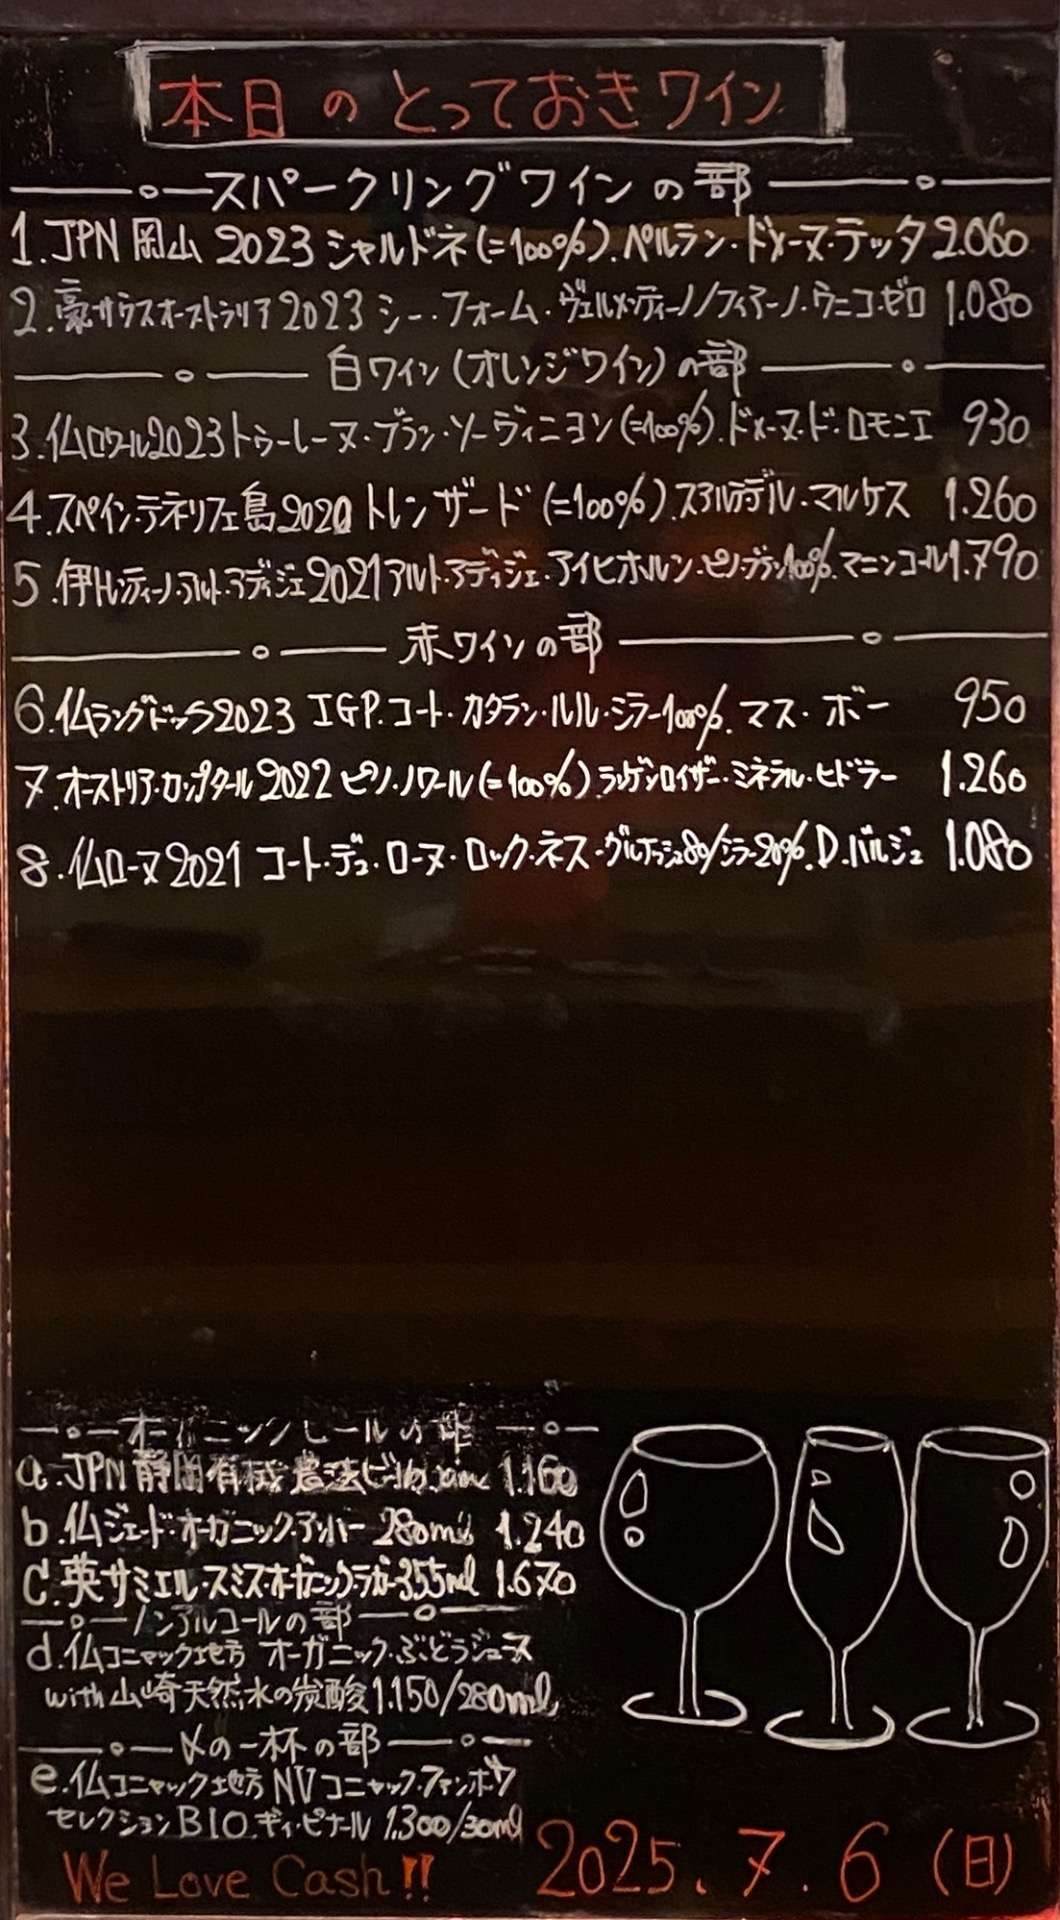 本日のとっておきワイン
スパークリングワインの部
1.JPN 岡山 2023 シャルドネ(=100%).ペルラン・ドメーヌ・テッタ 2.060
2.豪サウスオーストラリア2023 シー・フォーム・ヴェルメンティーノ/フィアーノ・ウニコ・ゼロ 1.080
白ワイン(オレンジワイン)の部
3.仏ロワール2023トゥーレーヌ・ブラン・ソーヴィニヨン(=100%).ドメーヌ・ド・ロモニエ 930
4.スペイン・テネリフェ島2020 トレンザード(=100%).スアルテデル・マルケス 1.260
5.伊トレンティーノ・アルト・アディジェ2021アルト・アディジェ・アイヒホルン・ピノ・ブラン100%.マニンコール 1.790
赤ワインの部
6.仏ラングドック2023 IGP.コート・カタラン・ルル・シラー100%.マス・ボー 950
7.オーストリア.カンプタール2022ピノ・ノワール(=100%).ランゲンロイザー・ミネラル・ヒドラー 1.260
8.仏ローヌ2021 コート・デュ・ローヌ・ロック・ネス・グルナッシュ80/シラー20%.D.バルジュ 1.080
オーガニックビールの部
a.JPN 静岡有機農法ビール 1.160
b.仏ジェード・オーガニック・アンバー 280ml 1.240
c.英サミエル・スミス・オーガニック・ラガー355ml 1.670
ノンアルコールの部
d.仏コニャック地方 オーガニック・ぶどうジュース
with山崎天然水の炭酸1.150/280ml
〆の一杯の部
e.仏コニャック地方 NVコニャック・ファンボワ
セレクションBIO.ギィ・ピナール 1.300/30ml
We Love Cash!!
2025.7.6(日)